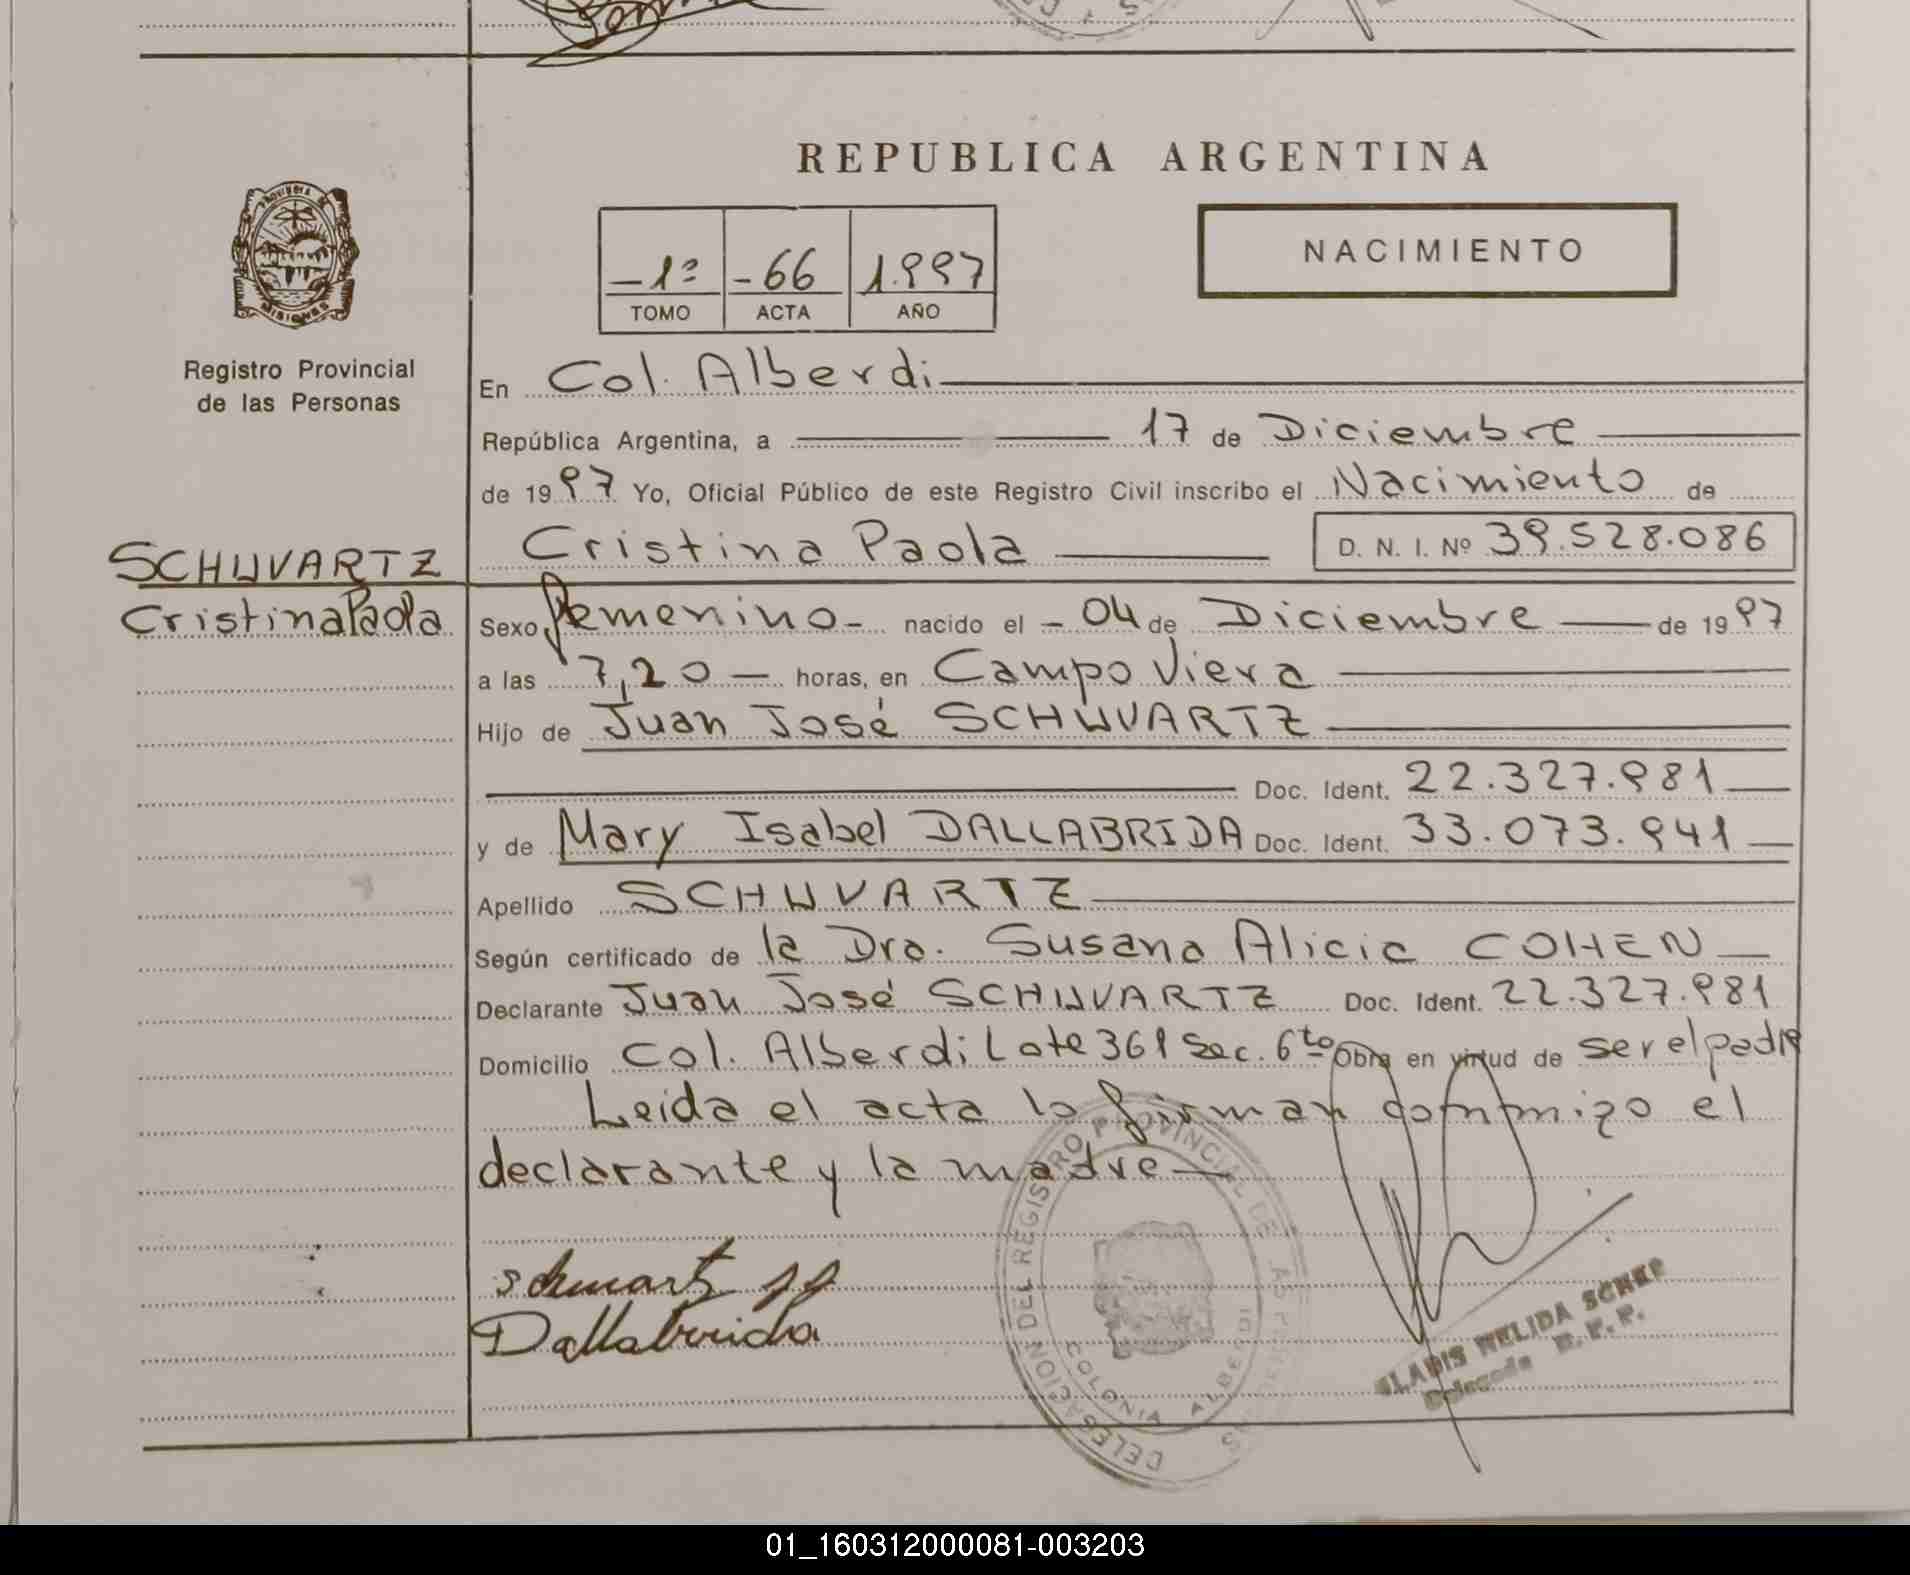 REPUBLICA ARGENTINA
PROVINCIA DE
MISIONES
Registro Provincial
de las Personas
-1º -66 1.997
TOMO ACTA AÑO
NACIMIENTO
En Col. Alberdi
República Argentina, a 17 de Diciembre
de 1997 Yo, Oficial Público de este Registro Civil inscribo el Nacimiento de
SCHWARTZ
Cristina Paola D. N. I. Nº 39.528.086
Cristina Paola
Sexo femenino - nacido el - 04 de Diciembre de 1997
a las 7,20 - horas, en Campo Viera
Hijo de Juan José SCHWARTZ
Doc. Ident. 22.327.981
y de Mary Isabel DALLABRIDA Doc. Ident. 33.073.941
Apellido SCHWARTZ
Según certificado de la Dra. Susana Alicia COHEN
Declarante Juan José SCHWARTZ Doc. Ident. 22.327.981
Domicilio Col. Alberdi Lote 361 Sec. 6to Obra en virtud de ser el padre
Leida el acta lo firman conmigo el
declarante y la madre
DELEGACION DEL REGISTRO PROVINCIAL DE LAS PERSONAS
COLONIA ALBERDI
Schwartz JJ
Dallabrida
GLADIS NELIDA
Delegada R.P.P.
01_160312000081-003203